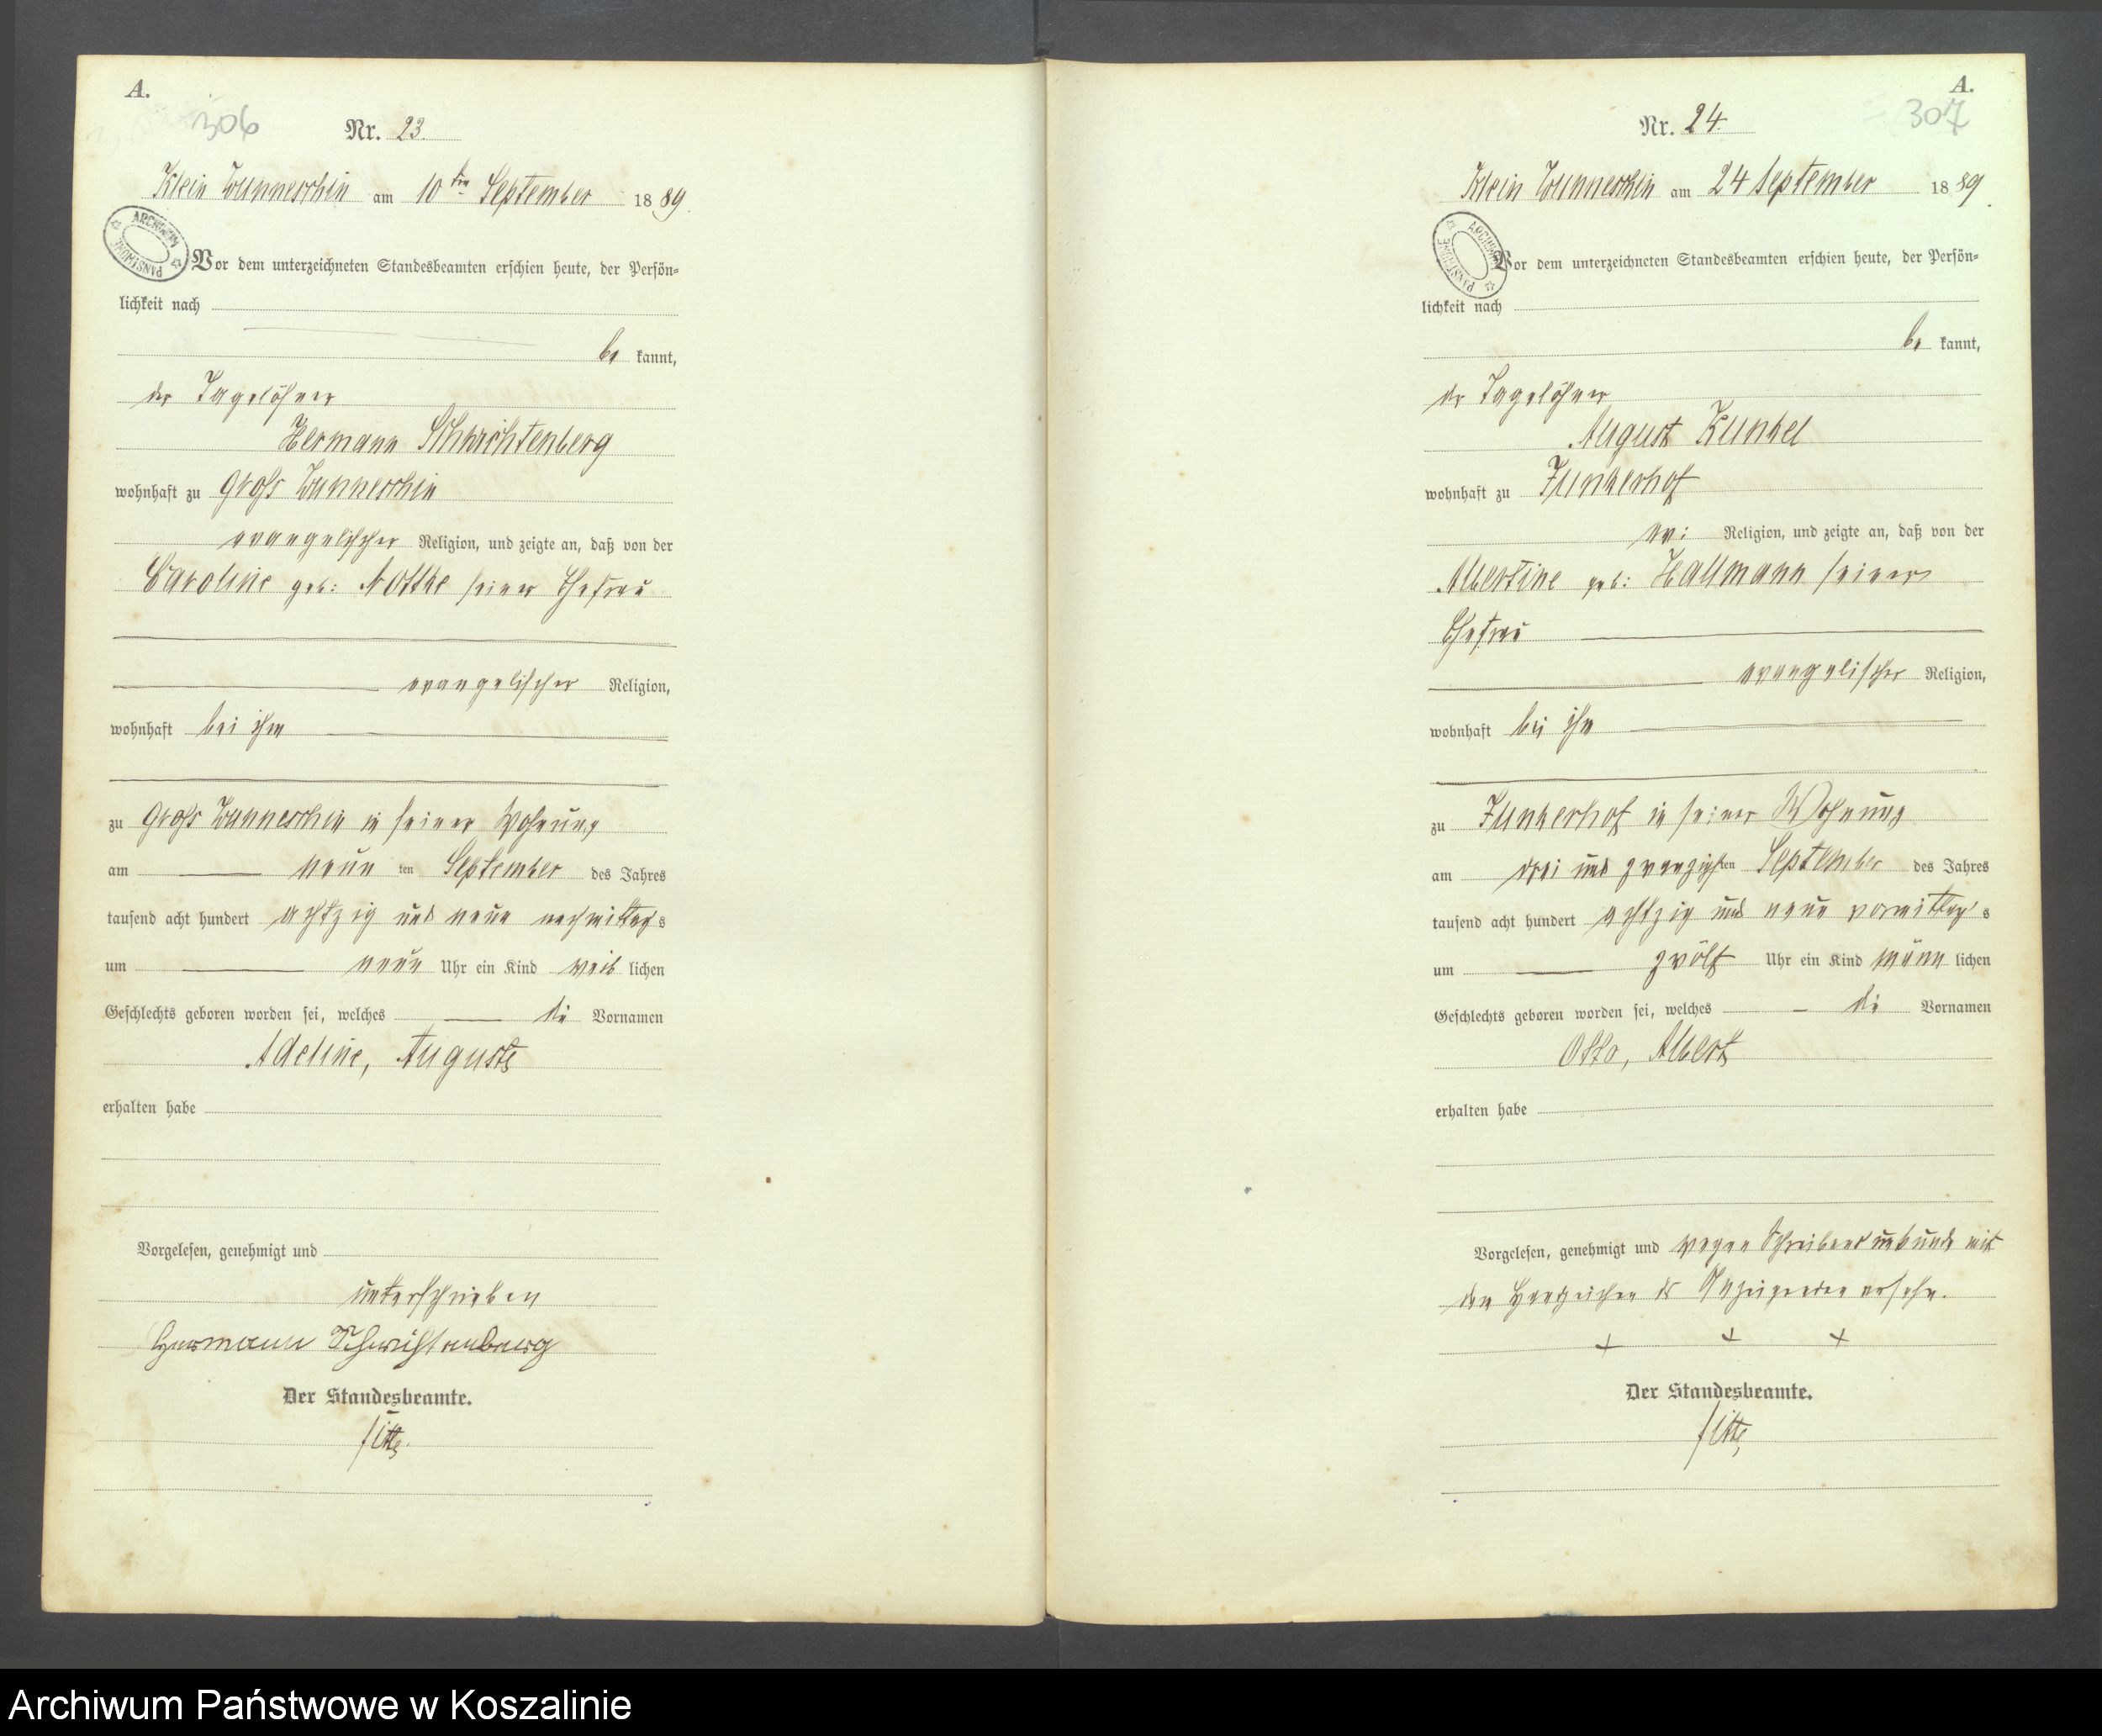 A.
306
Nr. 23.
Klein Wunneschin am 10ten September 1889.
ARCHIWUM PAŃSTWOWE
Vor dem unterzeichneten Standesbeamten erschien heute, der Persön-
lichkeit nach
be kannt,
der Tagelöhner
Hermann Schwichtenberg
wohnhaft zu Groß Wunneschin
evangelischer Religion, und zeigte an, daß von der
Caroline geb: Nottke seiner Ehefrau
evangelischer Religion,
wohnhaft bei ihm
zu Groß Wunneschin in seiner Wohnung
am neun ten September des Jahres
tausend acht hundert achtzig und neun nachmittags
um neun Uhr ein Kind weib lichen
Geschlechts geboren worden sei, welches die Vornamen
Adeline, Auguste
erhalten habe
Vorgelesen, genehmigt und
unterschrieben
Hermann Schwichtenberg
Der Standesbeamte.
A.
307
Nr. 24.
Klein Wunneschin am 24 September 1889.
ARCHIWUM PAŃSTWOWE
Vor dem unterzeichneten Standesbeamten erschien heute, der Persön-
lichkeit nach
be kannt,
der Tagelöhner
August Kunkel
wohnhaft zu Junkerhof
ev: Religion, und zeigte an, daß von der
Albertine geb: Hallmann seiner
Ehefrau
evangelischer Religion,
wohnhaft bei ihm
zu Junkerhof in seiner Wohnung
am drei und zwanzigsten September des Jahres
tausend acht hundert achtzig und neun vormittags
um zwölf Uhr ein Kind männ lichen
Geschlechts geboren worden sei, welches die Vornamen
Otto, Albert
erhalten habe
Vorgelesen, genehmigt und wegen Schreibensunkunde mit
den Handzeichen des Anzeigenden versehn.
+ + +
Der Standesbeamte.
Archiwum Państwowe w Koszalinie